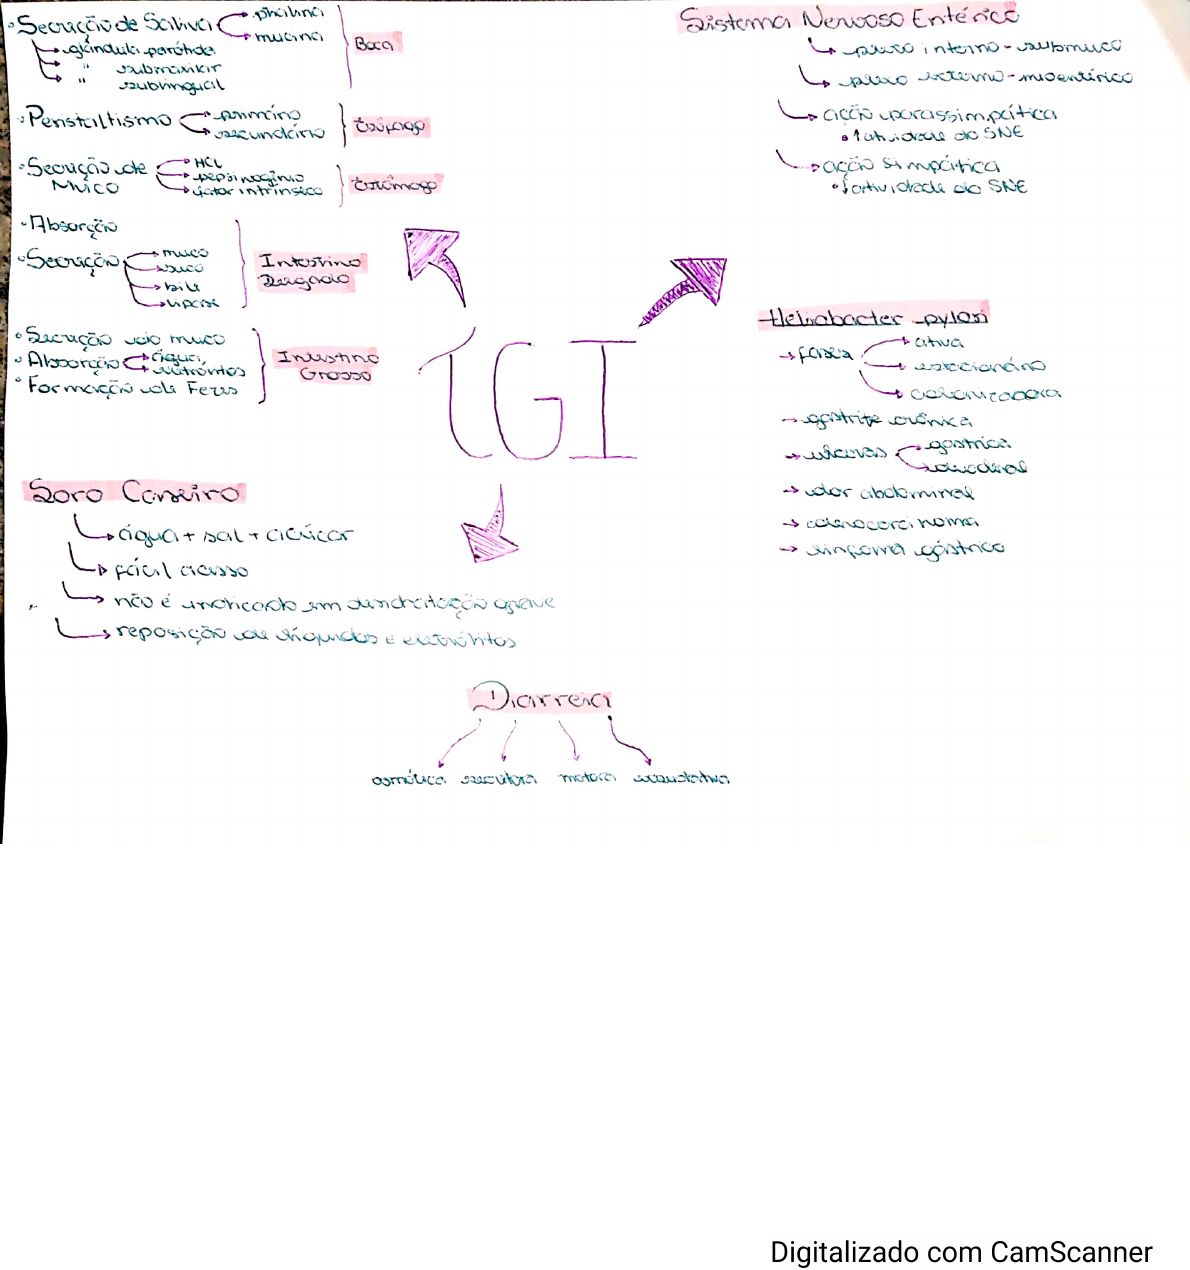 • Secreção de Saliva
ptialina
mucina
Boca
glândula parótida
" submaxilar
" sublingual
• Peristaltismo
primário
secundário
Esôfago
• Secreção de Muco
HCl
pepsinogênio
fator intrínseco
Estômago
• Absorção
• Secreção
muco
suco
bile
lipase
Intestino
Delgado
• Secreção de muco
• Absorção
água,
eletrólitos
• Formação de Fezes
Intestino
Grosso
TGI
Sistema Nervoso Entérico
plexo interno - submuco
plexo externo - mioentérico
ação parassimpática
• ↑ atividade do SNE
ação simpática
• ↓ atividade do SNE
Heliobacter pylori
→ fases
ativa
estacionário
colonizadora
→ gastrite crônica
→ úlceras
gástrica
duodenal
→ dor abdominal
→ adenocarcinoma
→ linfoma gástrico
Soro Caseiro
água + sal + açúcar
fácil acesso
não é indicado em desidratação grave
reposição de líquidos e eletrólitos
Diarreia
osmótica secretora motora exsudativa
Digitalizado com CamScanner